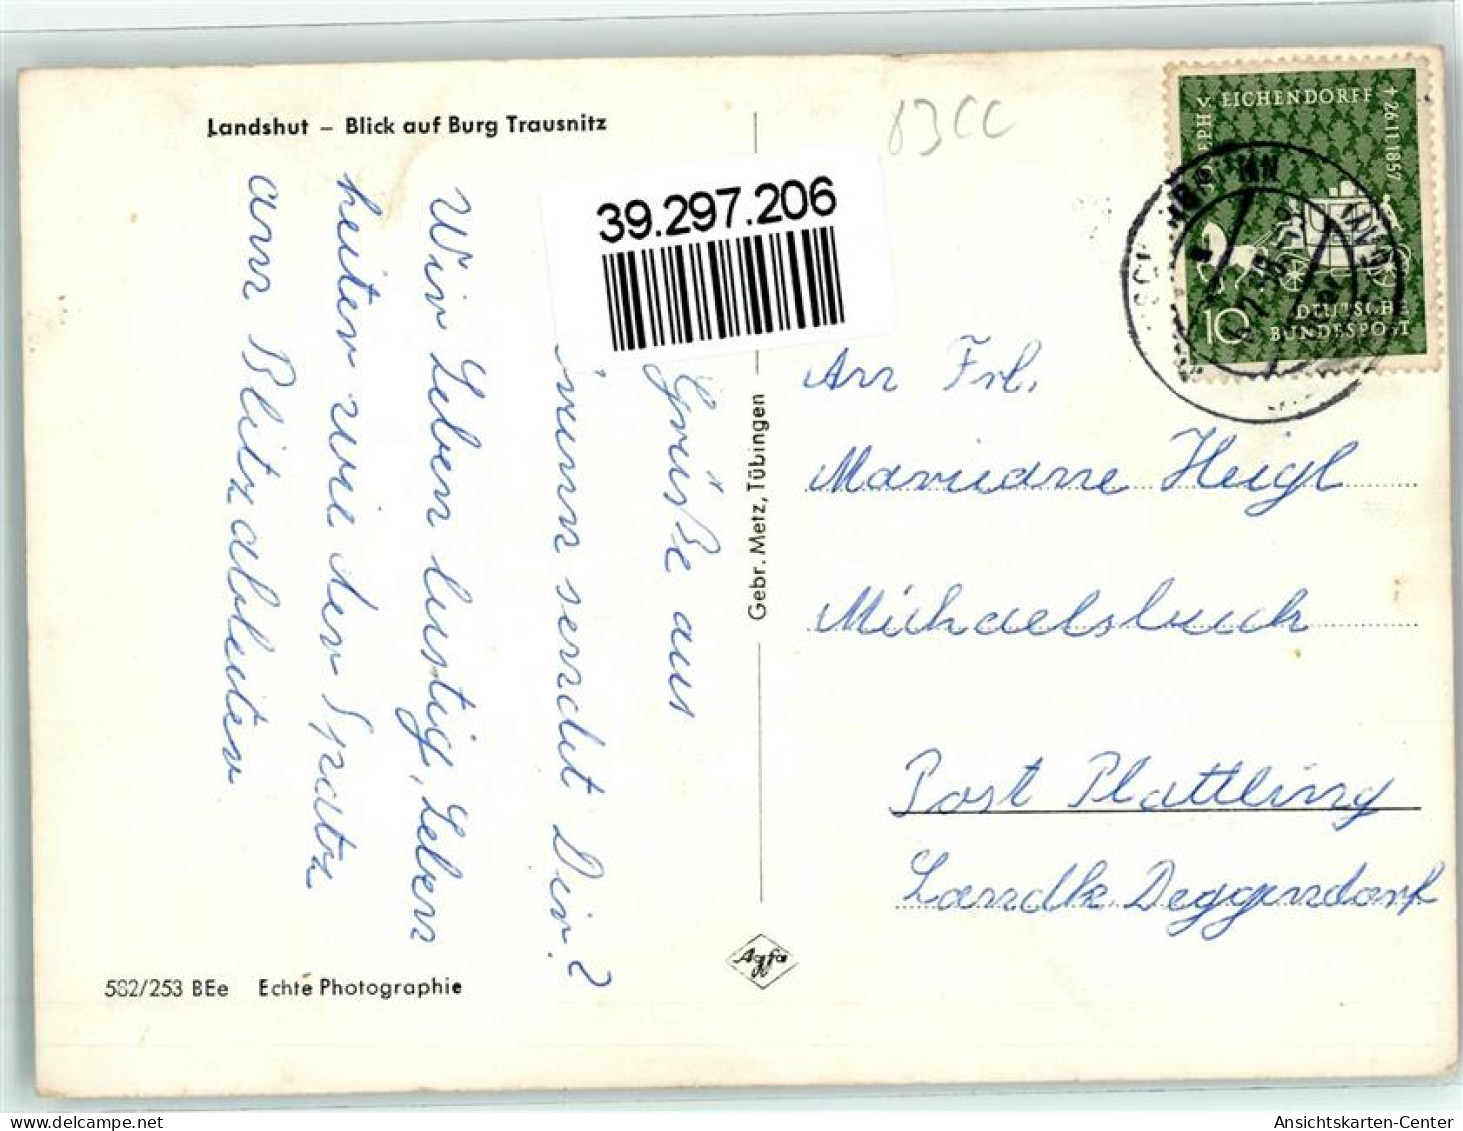 Landshut – Blick auf Burg Trausnitz
83CC
39.297.206
JOSEPH V. EICHENDORFF † 26.11.1857
10
DEUTSCHE
BUNDESPOST
Grüße aus
sendet Dir?
Wir Leben lustig, Leben
heiter wie der Spatz
am Blitzableiter
Gebr. Metz, Tübingen
An Frl.
Marianne Heigl
Michaelsbuch
Post Plattling
Landk. Deggendorf
Agfa
582/253 BEe Echte Photographie
Ansichtskarten-Center